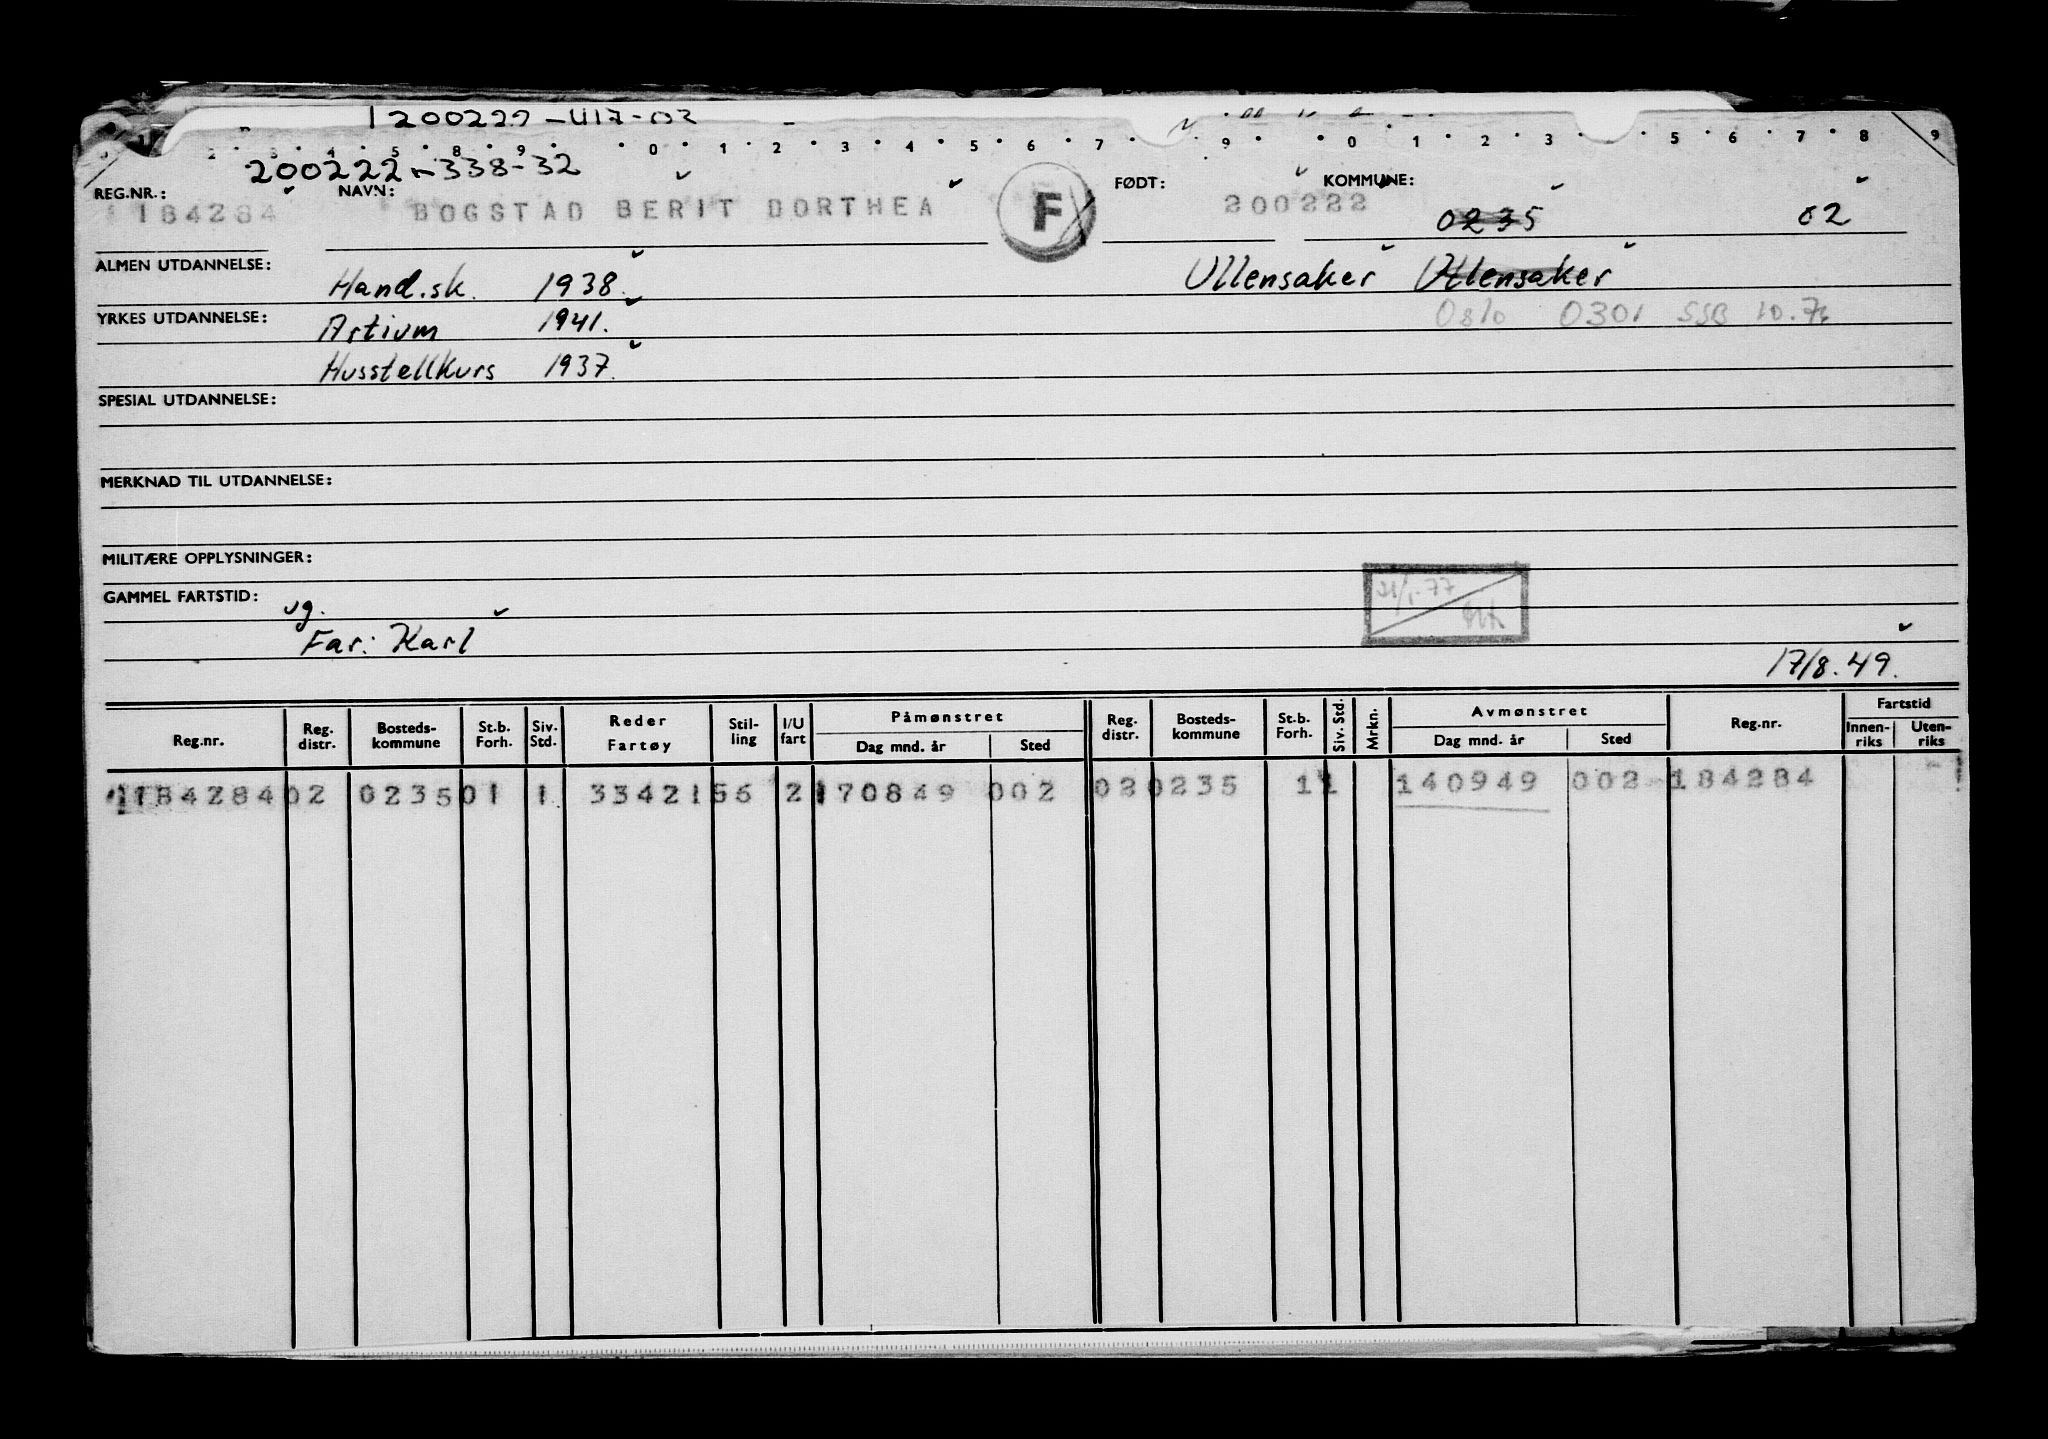 200222-338-32
REG.NR.: NAVN: FØDT: KOMMUNE:
184284 BOGSTAD BERIT DORTHEA F 200222 0235 02
ALMEN UTDANNELSE: Hand.sk. 1938. Ullensaker Ullensaker
YRKES UTDANNELSE: Artium 1941. Oslo 0301 SSB 10.76
Husstellkurs 1937.
SPESIAL UTDANNELSE:
MERKNAD TIL UTDANNELSE:
MILITÆRE OPPLYSNINGER:
GAMMEL FARTSTID: ug.
Far: Karl
17/8.49.
Reg.nr. Reg. distr. Bosteds- kommune St.b. Forh. Siv. Std. Reder Fartøy Stil- ling I/U fart Påmønstret Dag mnd. år Sted Reg. distr. Bosteds- kommune St.b. Forh. Siv. Std. Mrkn. Avmønstret Dag mnd. år Sted Reg.nr. Fartstid Innen- riks Uten- riks
184284 02 0235 01 1 33421 56 2 170849 002 02 0235 1 1 140949 002 184284